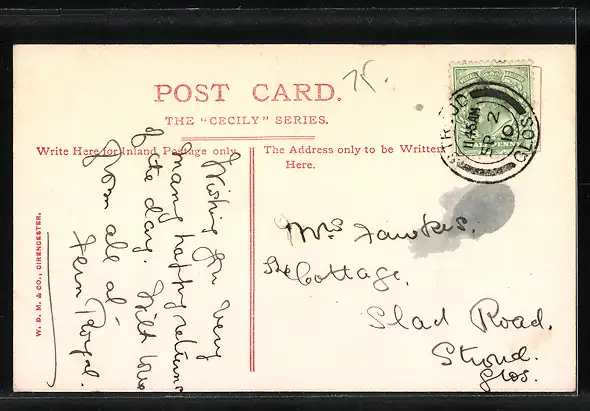 POST CARD.
THE "CECILY" SERIES.
Write Here for Inland Postage only.
The Address only to be Written
Here.
Wishing you very
many happy returns
of the day. With love
from all at
Fern Royal.
Mrs Fawkes.
Cottage,
Slad Road.
Stroud.
Glos.
11.45AM
SP 2
10
GLOS
W. D. M. & CO., CIRENCESTER.